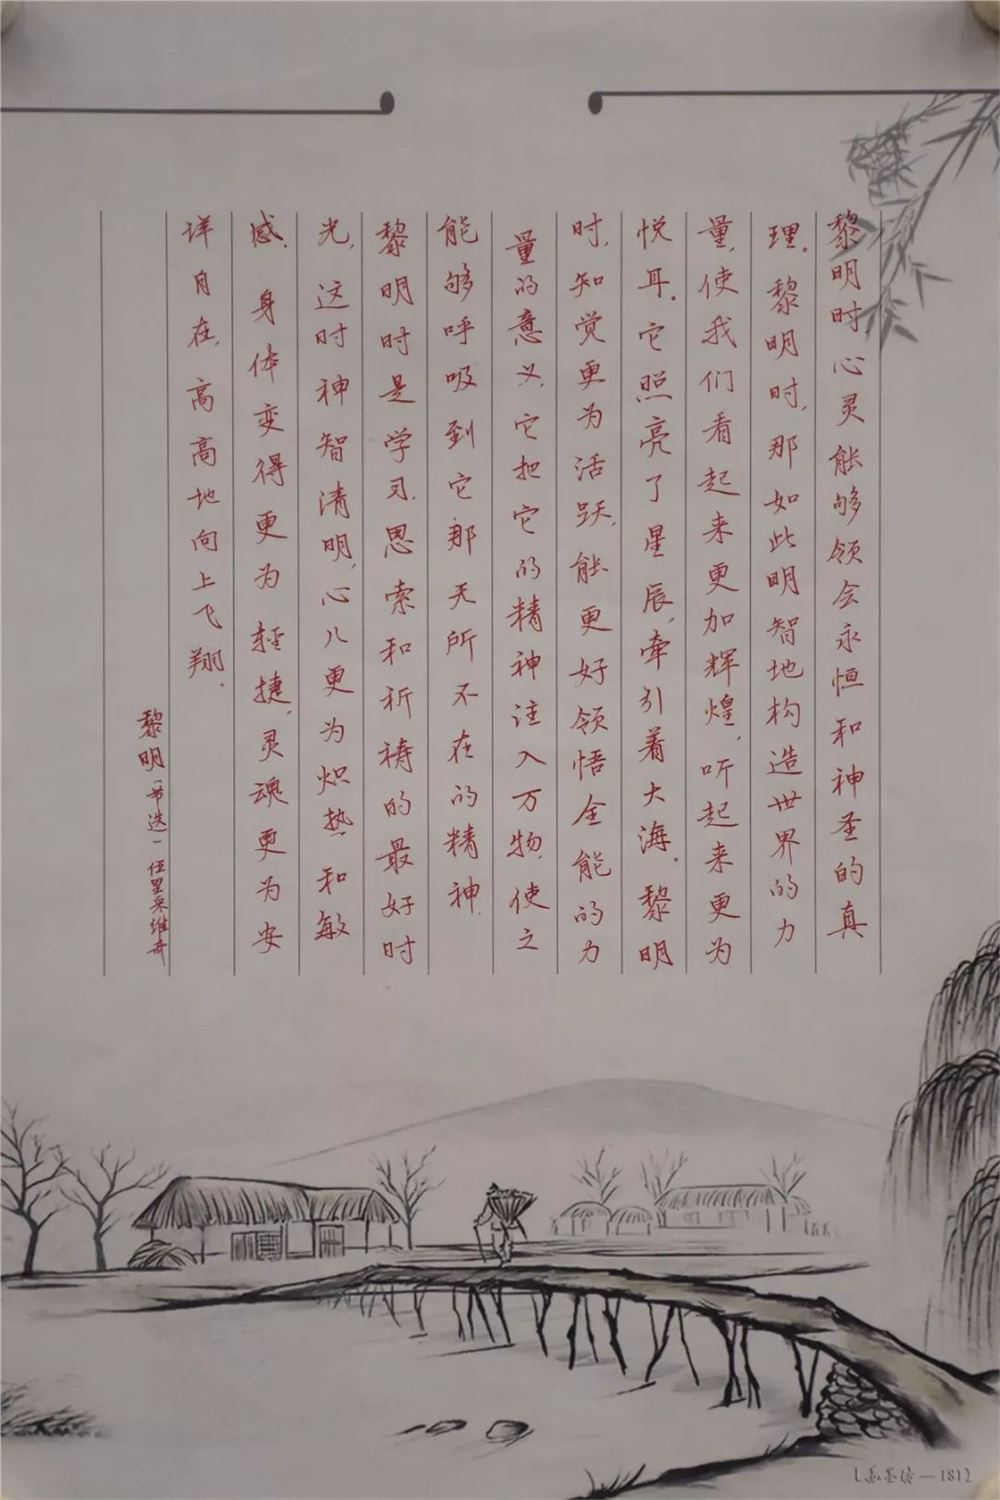 黎明时心灵能够领会永恒和神圣的真
理。黎明时,那如此明智地构造世界的力
量,使我们看起来更加辉煌,听起来更为
悦耳。它照亮了星辰,牵引着大海。黎明
时,知觉更为活跃,能更好领悟全能的力
量的意义,它把它的精神注入万物,使之
能够呼吸到它那无所不在的精神.
黎明时是学习.思索和祈祷的最好时
光,这时神智清明,心儿更为炽热和敏
感.身体变得更为轻捷,灵魂更为安
详自在,高高地向上飞翔.
黎明(节选)伍里采维奇
1812